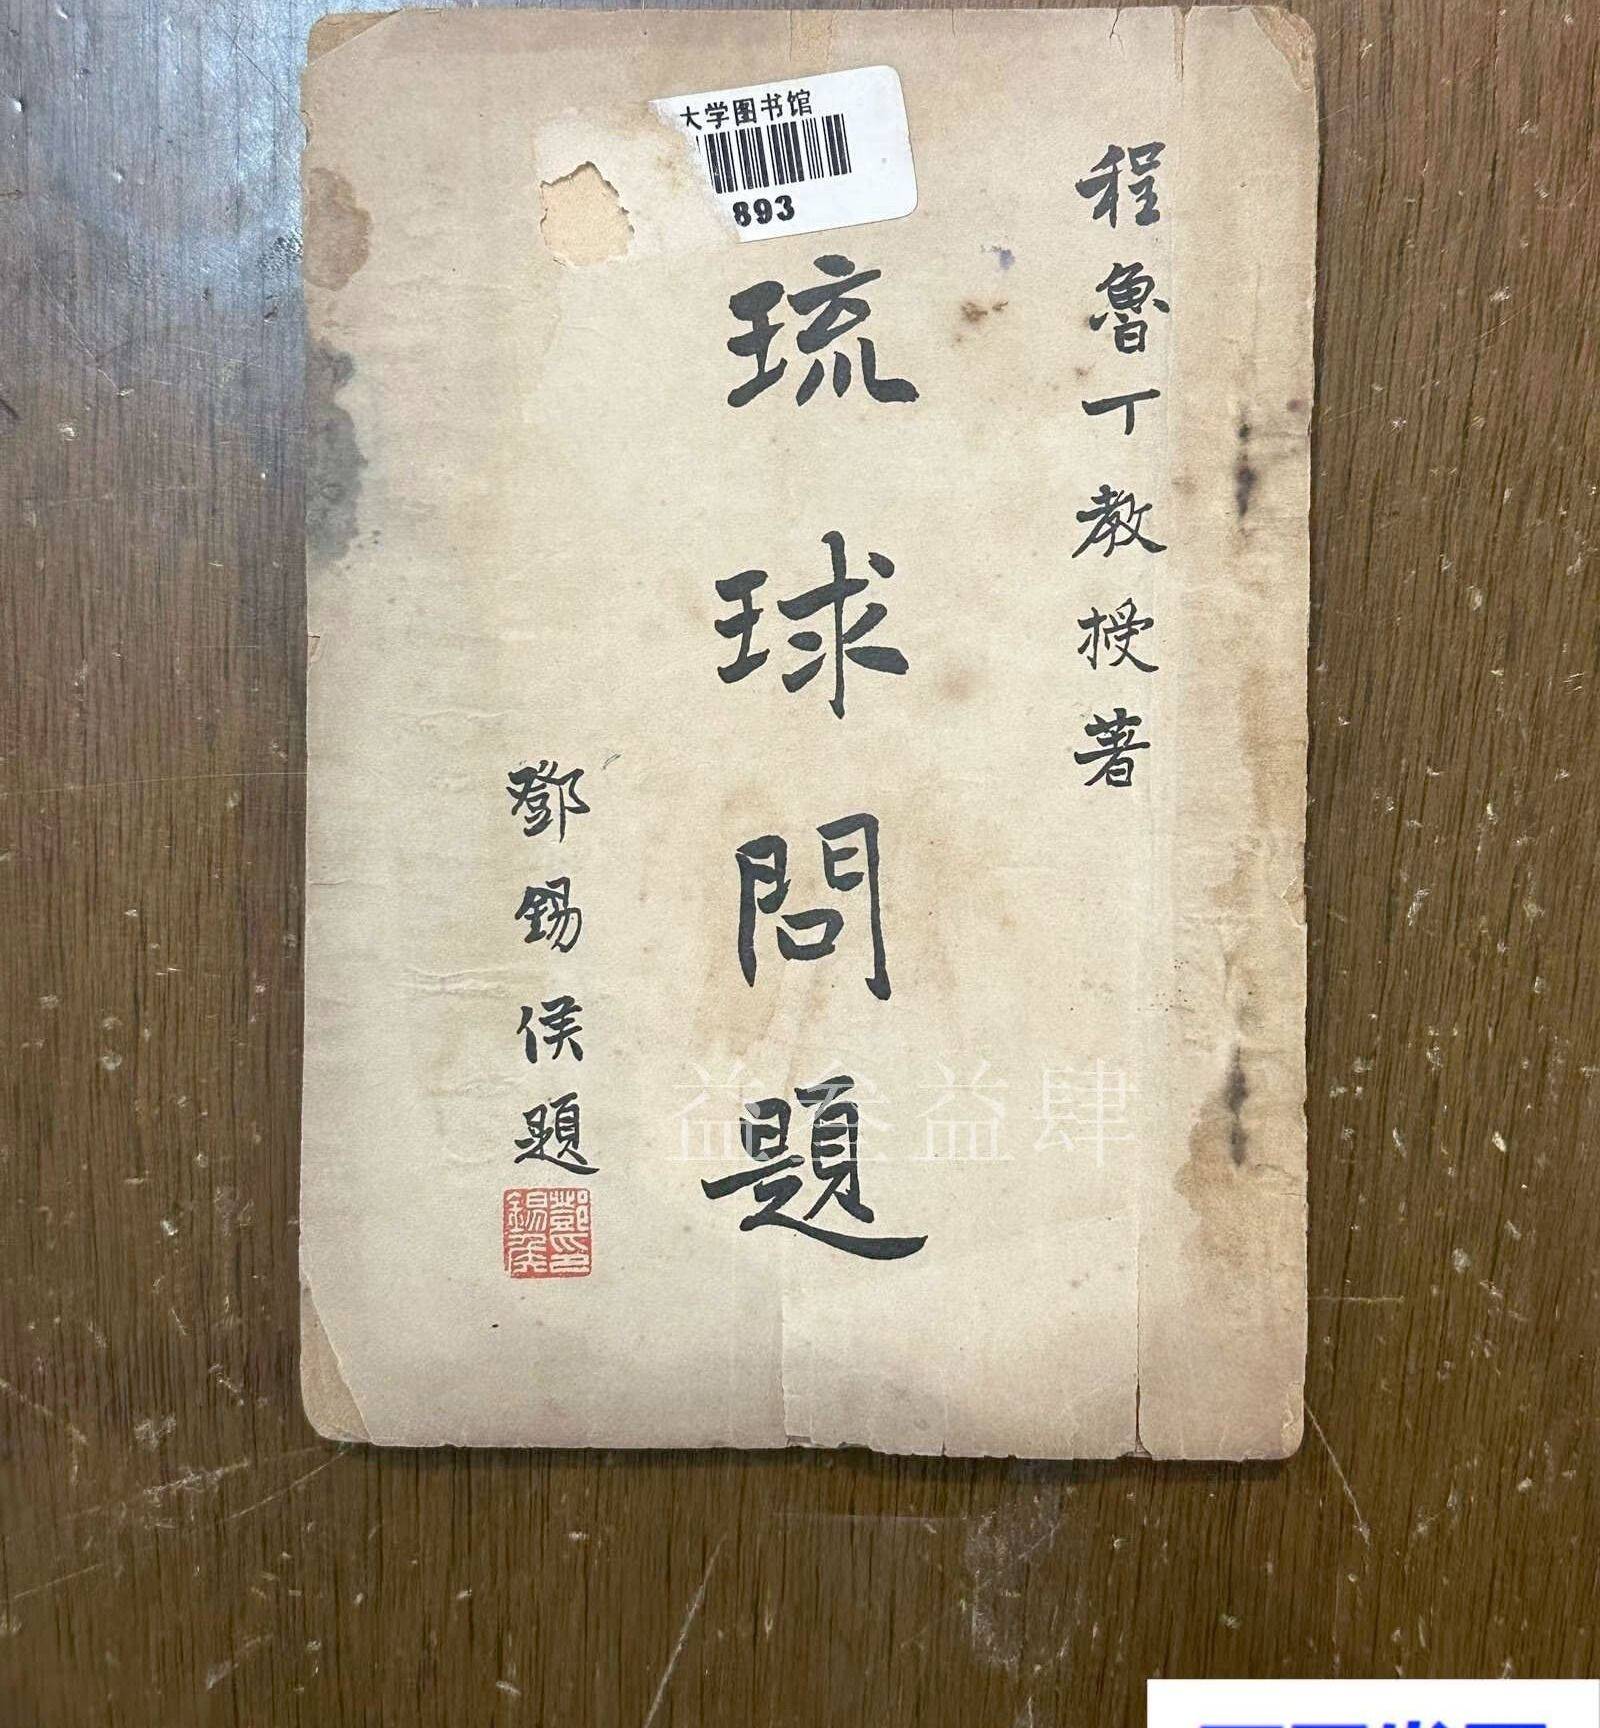 程魯丁教授著
琉球問題
鄧錫侯題
鄧印錫侯
大学图书馆
893
益叁益肆